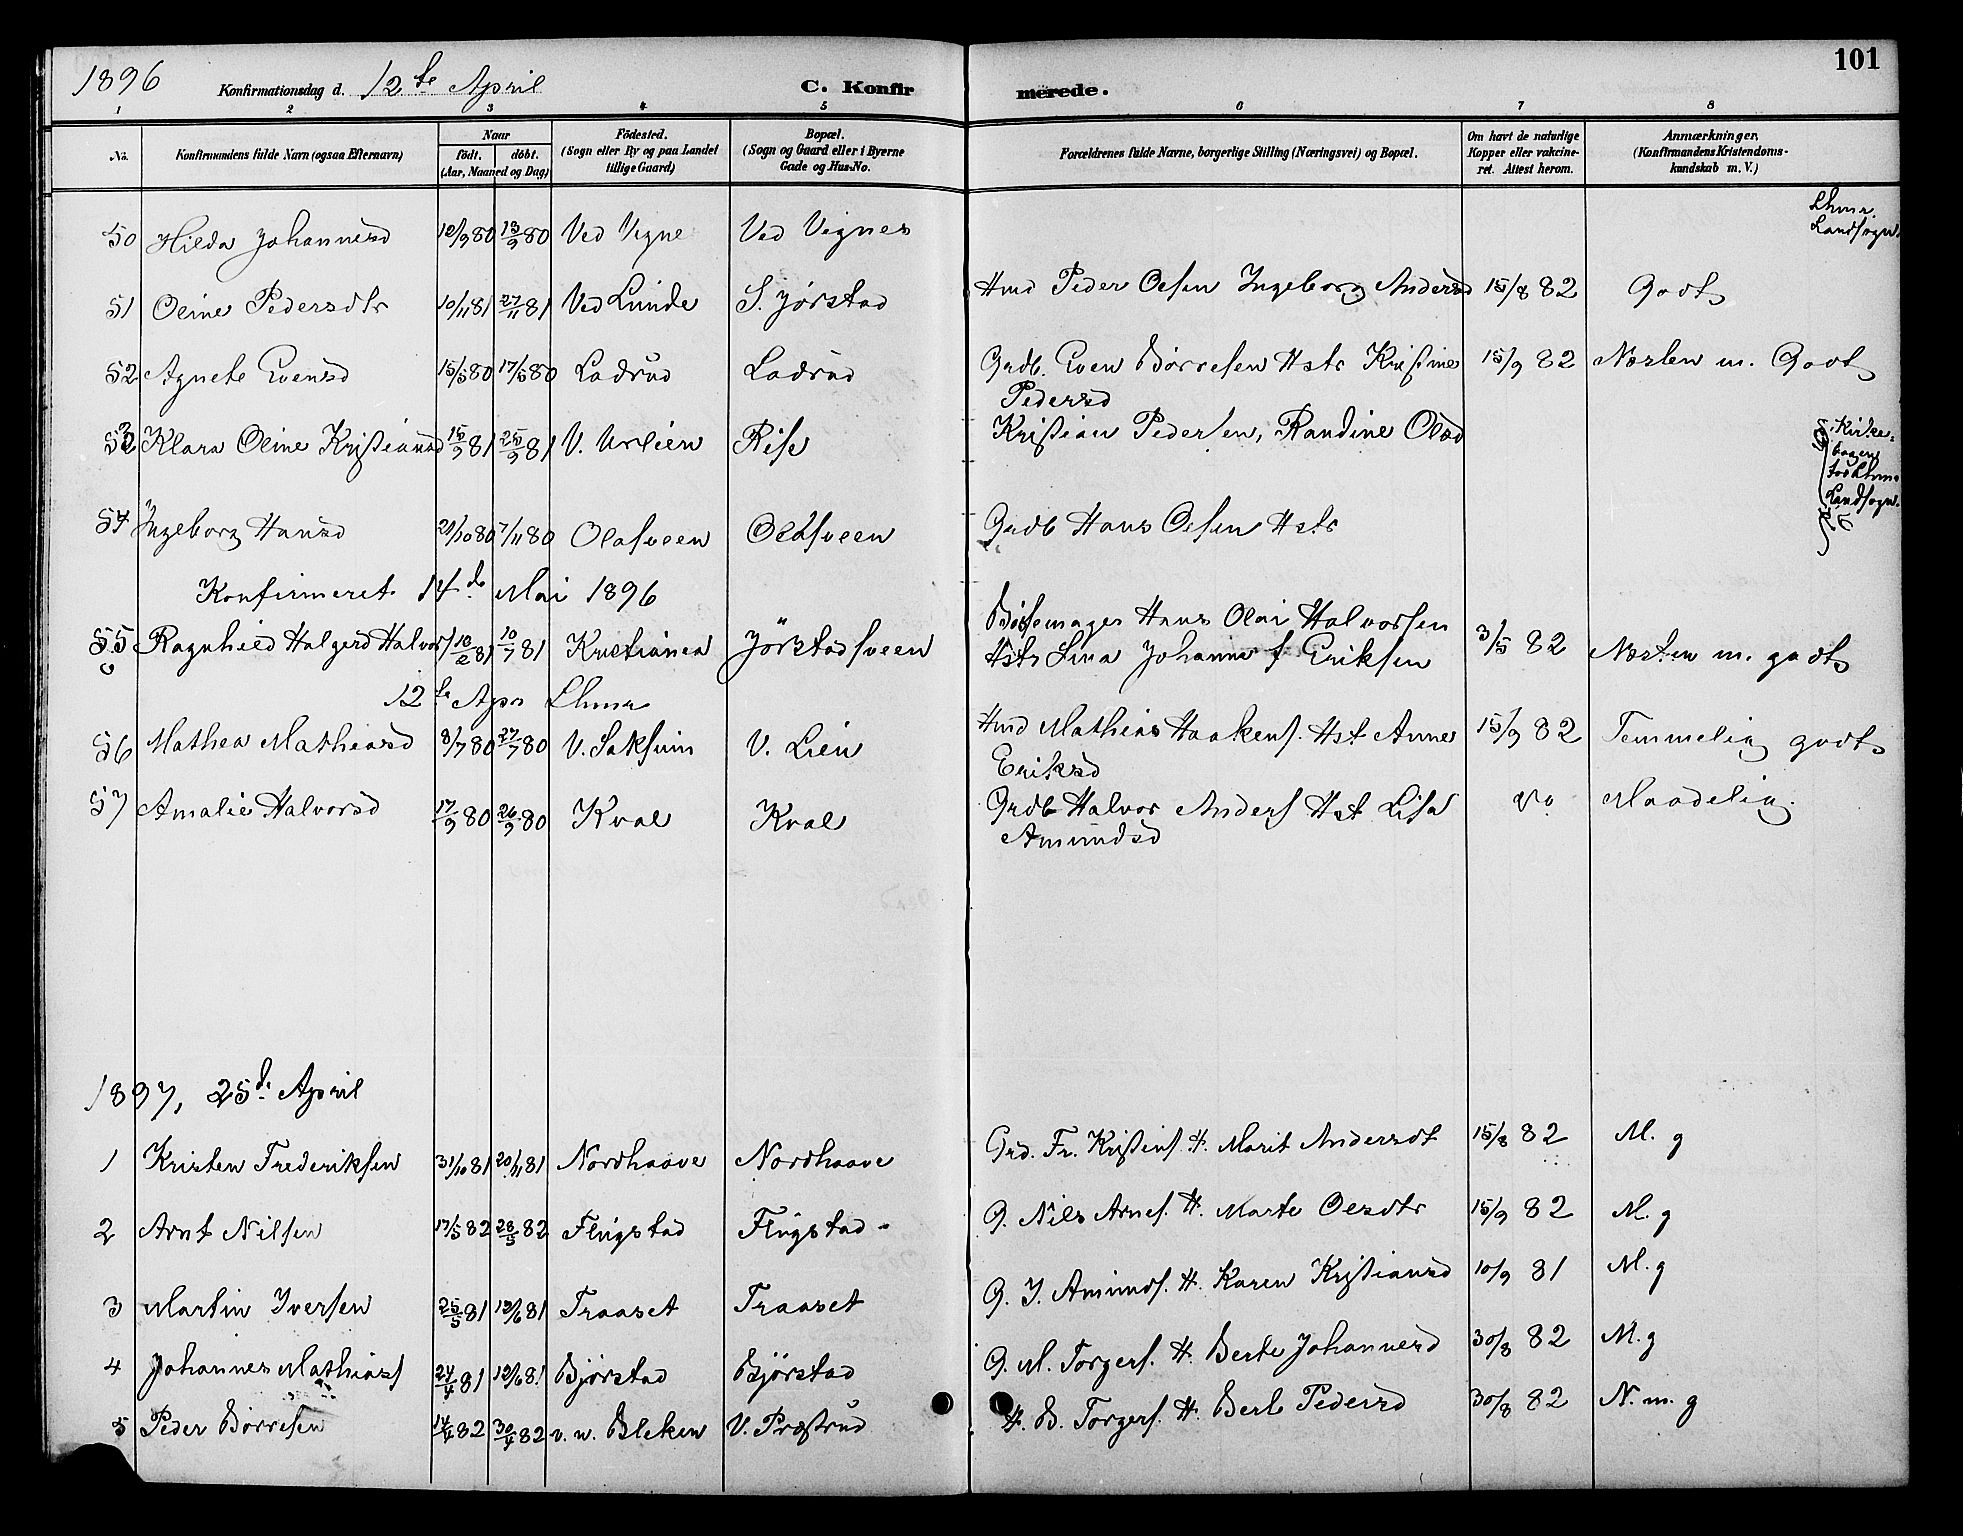 101
1896 Konfirmationsdag d. 12te April C. Konfirmerede.
1 2 3 4 5 6 7 8
No. Konfirmandens fulde Navn (ogsaa Efternavn) Naar födt. döbt. (Aar, Maaned og Dag) Födested. (Sogn eller By og paa Landet tillige Gaard) Bopæl. (Sogn og Gaard eller i Byerne Gade og Hus-No. Forældrenes fulde Navne, borgerlige Stilling (Næringsvei) og Bopæl. Om havt de naturlige Kopper eller vakcineret. Attest herom. Anmærkninger. (Konfirmandens Kristendomskundskab m. V.)
50 Hilda Johannesd 12/9 80 19/9 80 Ved Vigne Ved Vignes Lhmr. Landsogn.
51 Oline Pedersdtr 10/11 81 27/11 81 Ved Lunde S. Jørstad Hmd Peder Olsen Ingeborg Andersd 15/8 82 Godt
52 Agnete Evensd 15/5 80 17/5 80 Ladrud Ladrud Grdb. Even Børresen Hstr Kristine 15/9 82 Næsten m. Godt
Pedersd
53 Klara Oline Kristiansd 15/9 81 25/9 81 V. Urlien Rise Kristian Pedersen, Randine Olsd Kirkebogen for Lhmr Landsogn.
54 Ingeborg Hansd 21/10 80 7/11 80 Olasveen Olasveen Grdb Hans Olsen Hstr
Konfirmeret 14de Mai 1896
55 Ragnhild Halgerd Halvors 10/2 81 10/7 81 Kristiania Jørstadsveen Bøssemager Hans Olai Halvorsen
Hstr Lina Johanne f Eriksen 3/5 82 Næsten m. godt
12te Apr Lhmr
56 Mathea Mathiasd 8/7 80 27/7 80 V. Saksum V. Lien Hmd Mathias Haakens. Hst Anne 15/9 82 Temmelig godt
Eriksd
57 Amalie Halvorsd 17/9 80 26/9 80 Kval Kval Grdb Halvor Anders Hst Lisa Do Maadelig.
Amundsd
1897, 25de April
1 Kristen Frederiksen 31/10 81 20/11 81 Nordhaave Nordhaave Grd. Fr. Kristens. H. Marit Andersdt 15/8 82 M. g
2 Arnt Nilsen 17/5 82 28/5 82 Flugstad Flugstad G. Nils Arnes. H. Marte Olsdtr 15/9 82 M. g
3 Martin Iversen 25/5 81 12/6 81 Traaset Traaset G. I. Amunds. H. Karen Kristiansd 10/9 81 M. g
4 Johannes Mathias 24/4 81 12/6 81 Bjørstad Bjørstad G. M. Torgers. H. Berte Johannesd 30/8 82 M. g
5 Peder Børresen 14/4 82 30/4 82 v. n. Bleken V. Præstrud H. B. Torgers. H. Berte Pedersd 30/8 82 N. m. g